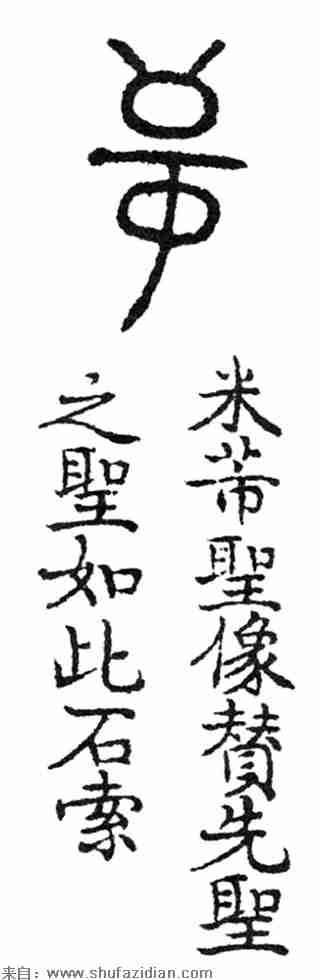 米芾聖像贊先聖
之聖如此石索
来自:www.shufazidian.com